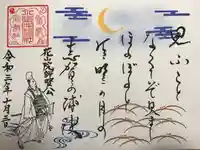 思ふこと
なくてぞ見まし
ほのぼのと
有明の月の
志賀の浦波
花山院師賢公
令和二年十月